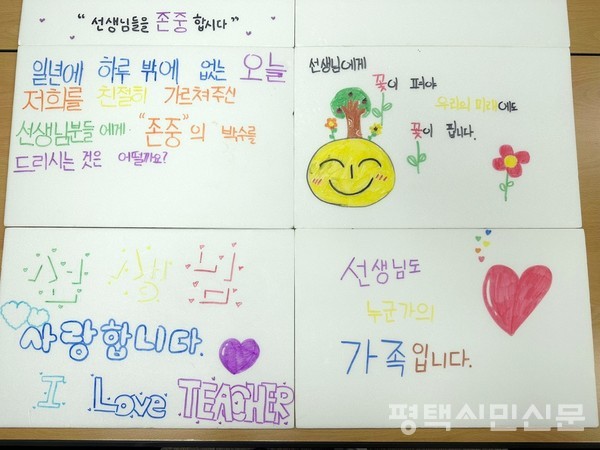 “선생님들을 존중 합시다”
일년에 하루 밖에 없는 오늘
저희를 친절히 가르쳐주신
선생님분들 에게 “존중”의 박수를
드리시는 것은 어떨까요?
선생님에게
꽃이 펴야
우리의 미래에도
꽃이 핍니다.
선생님
사랑합니다.
I Love TEACHER
선생님도
누군가의
가족입니다.
평택시민신문